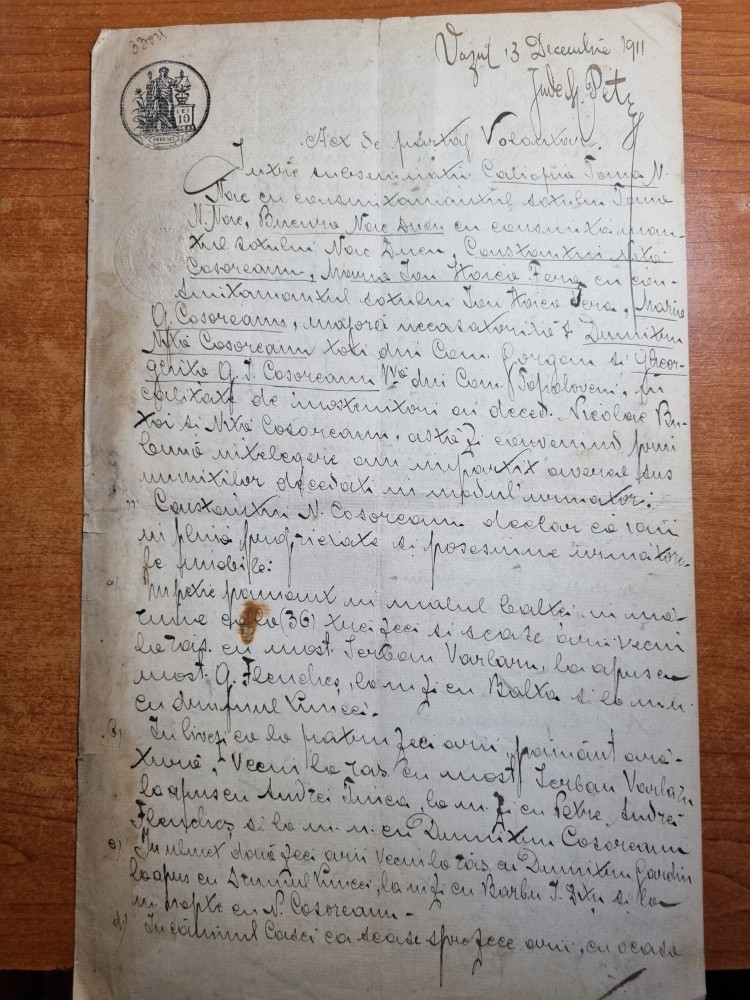 3304
Vazut 13 Decembrie 1911
Jude
LEI 10
Act de partaj Voluntar.
Intre subsemnatii Caliopia Toma N.
Noic cu consimtamantul sotului Toma
N. Noic, Bucura Noic Ducu cu consimtaman-
tul sotului Noic Ducu, Constantin Nita
Cosoreanu, Maria Ion Hoica Fera cu con-
simtamantul sotului Ion Hoica Fera, Maria
G. Cosoreanu, majora necasatorita & Dumitru
Nita Cosoreanu toti din Com. Gorgani si Gheor-
ghita G. I. Cosoreanu din Com. Topoloveni, in
calitate de mostenitori ai deced. Nicolae Bu-
toi si Nita Cosoreanu, astazi convenind prin
buna intelegere am impartit averea sus
numitilor decedati in modul urmator:
1) Constantin N. Cosoreanu declar ca iau
in plina proprietate si posesiune urmatoare-
le imobile:
a) petre pamant in malul baltei in ma-
rime ca la (36) treizeci si sease arii vecini
la ras. cu most. Serban Varlaru, la apus cu
most. G. Flenches, la m. zi cu Balta si la m.n.
cu drumul Luncei.
b) In livezi ca la patruzeci arii, pamant ara-
tura, Vecini la ras. cu most Serban Varlaru
la apus cu Andrei Tuica, la m. zi cu Petre Andrei
Flenches si la m. n. cu Dumitru Cosoreanu
c) In ulmet doua zeci arii vecini la ras. cu Dumitru Gardin
la apus cu drumul Luncei, la m zi cu Barbu I. Zitu si la
m. nopte cu N. Cosoreanu -
d) In caminul Casei ca sease sprezece arii, cu ocase